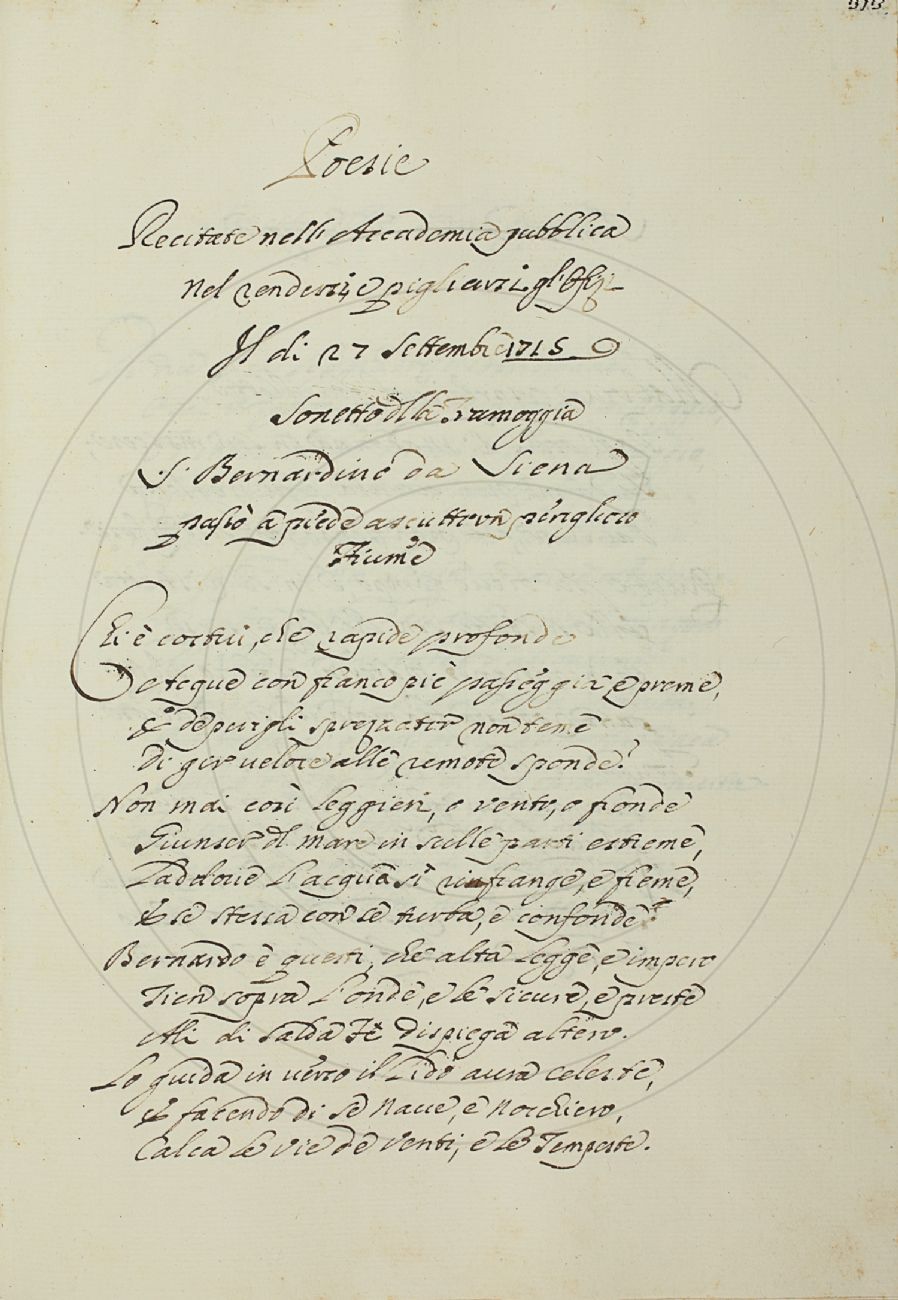 Poesie
Recitate nell' Accademia pubblica
Nel rendersi, e pigliarsi gl'Offizj
Il dì 27 Settembre 1715
Sonetto della Tramoggia
S. Bernardino da Siena
passò a piede asciutto un periglioso
Fiume
Chi è costui, che rapide profonde
Acque con franco piè passeggia e preme,
E de perigli sprezzator non teme
Di gir veloce alle remote sponde?
Non mai così leggieri, o vento, o fionde
Giunser del mare in sulle parti estreme,
Laddove l'acqua si rinfrange, e freme,
E se stessa con se turba, e confonde?
Bernardo è questi, che alta legge, e impero
Tien sopra l'onde, e le sicure, e preste
Ali di salda Fè dispiega altero.
Lo guida in verso il Lido aura celeste,
E facendo di se Nave, e Nocchiero,
Calca le vie de venti, e le Tempeste.